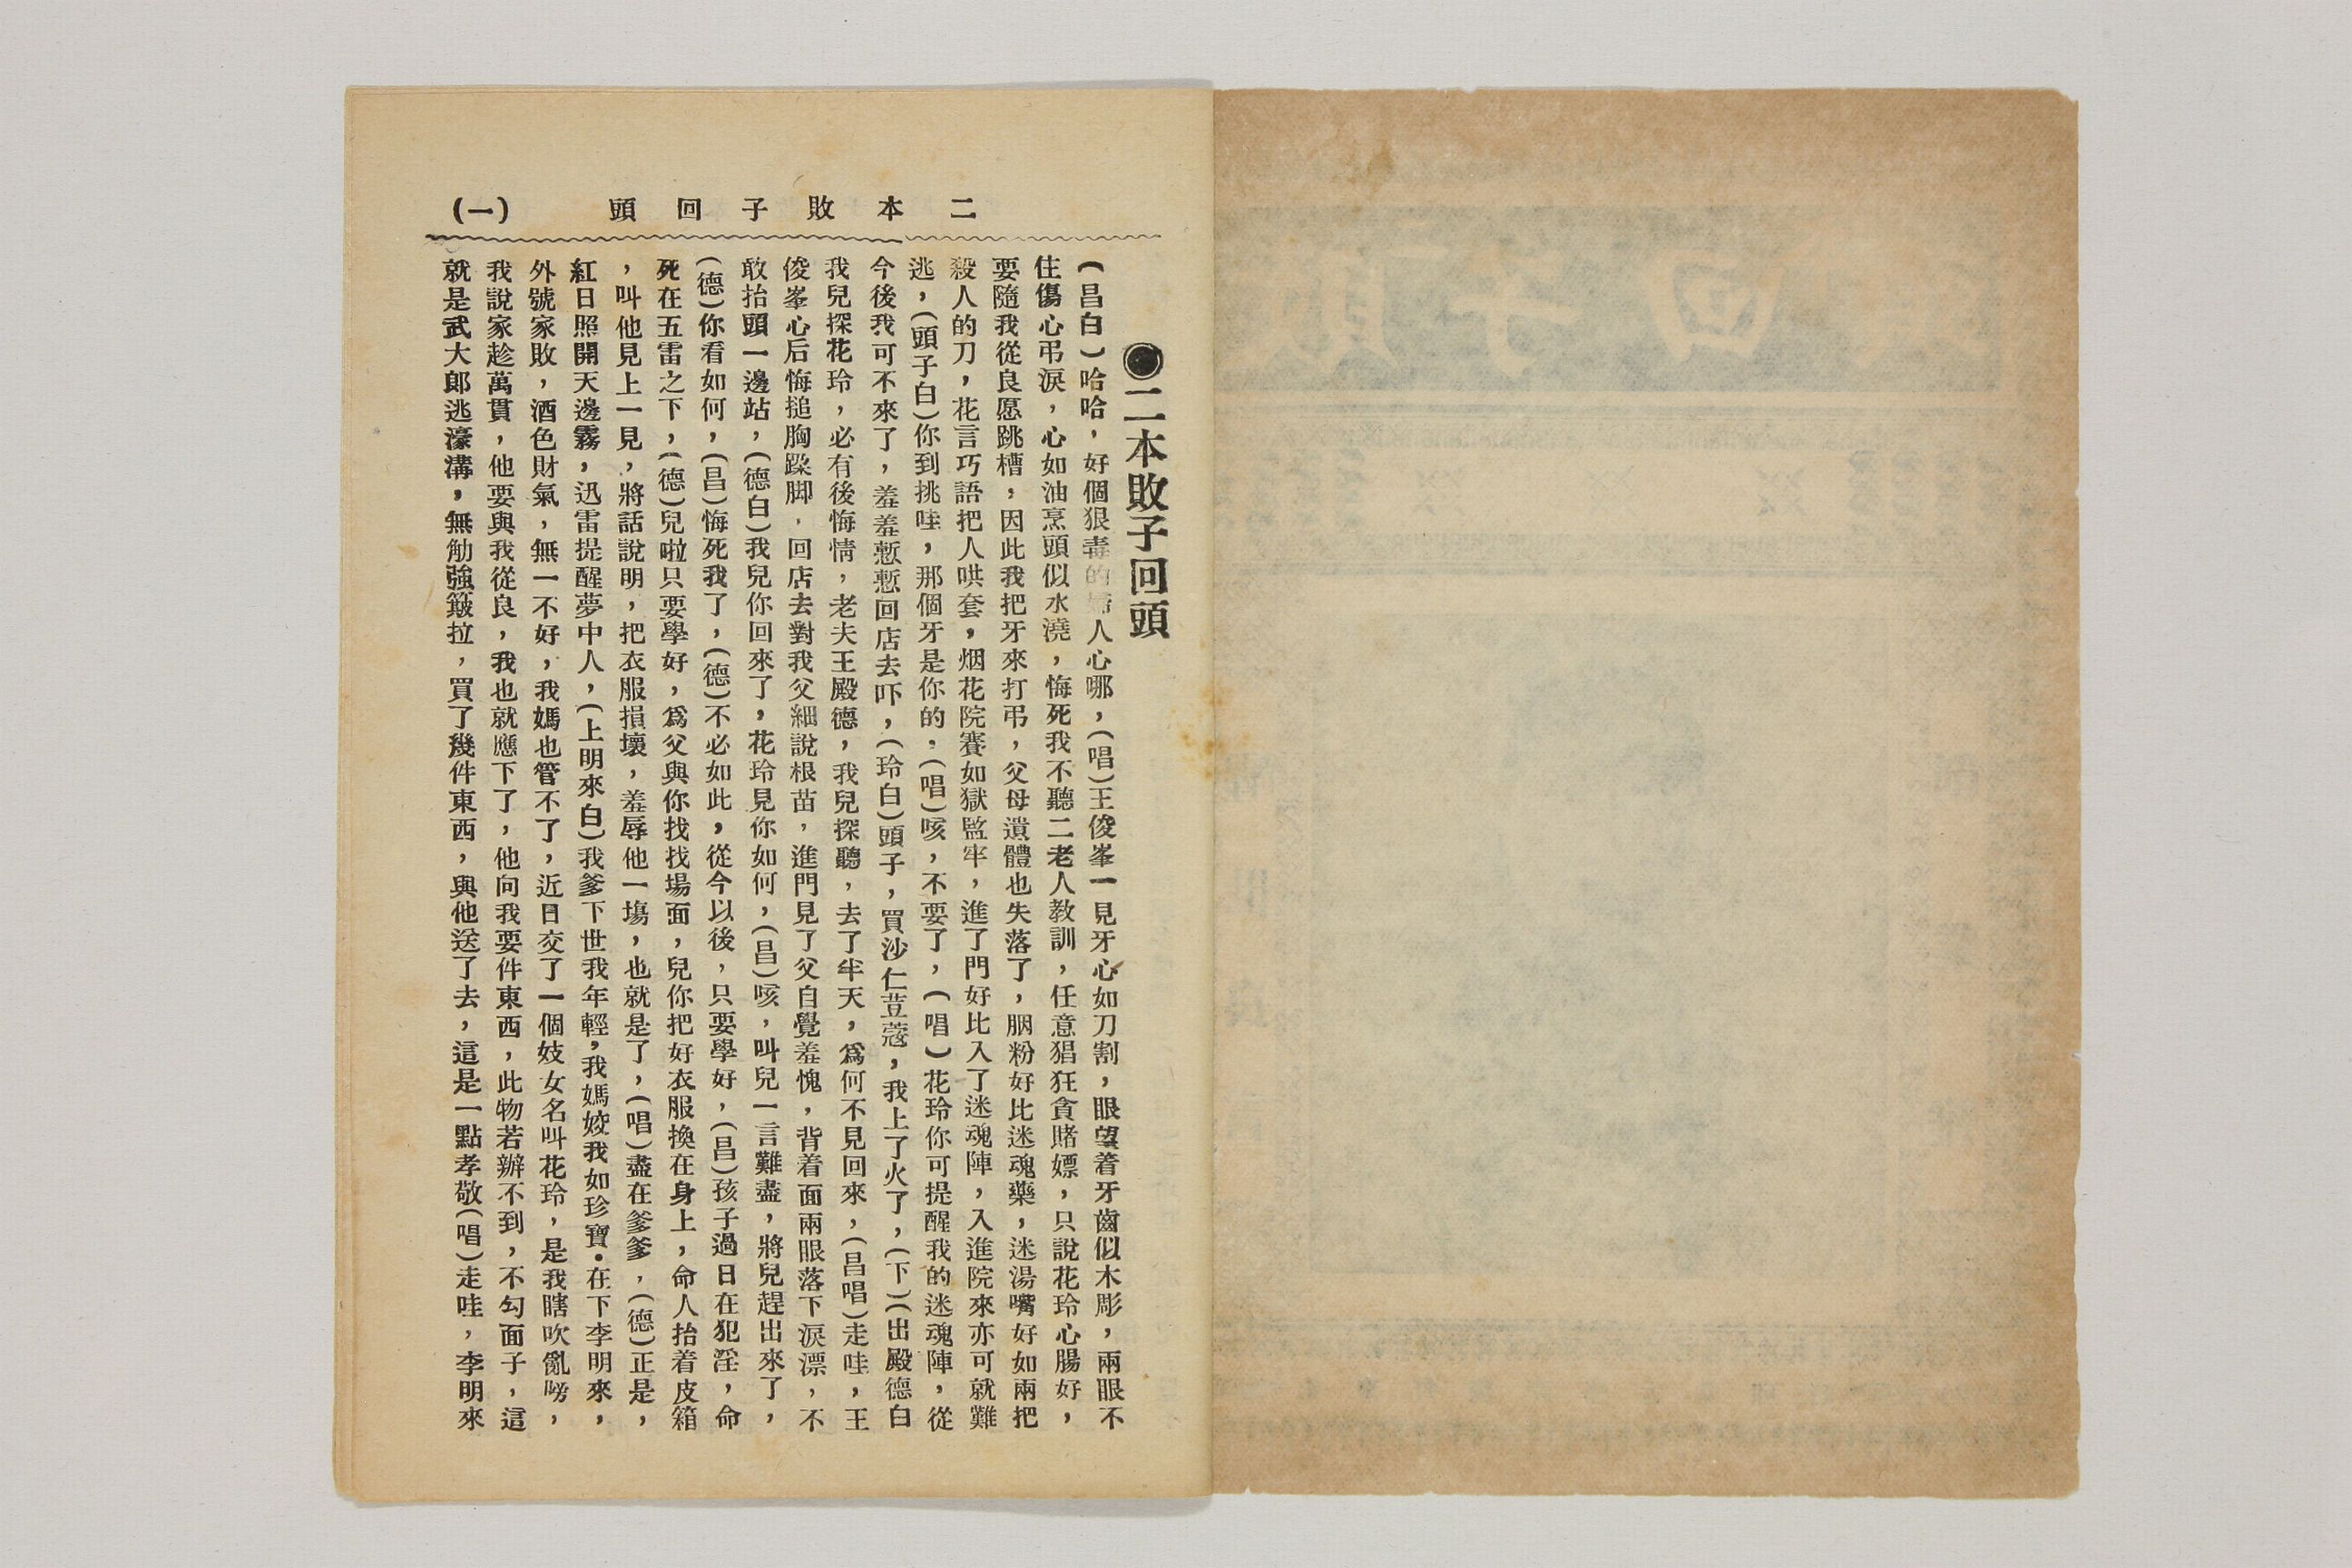 二本敗子回頭
(一)
●二本敗子回頭
(昌白)哈哈，好個狠毒的婦人心哪，(唱)王俊峯一見牙心如刀割，眼望着牙齒似木彫，兩眼不
住傷心弔淚，心如油烹頭似水澆，悔死我不聽二老人教訓，任意猖狂貪賭嫖，只說花玲心腸好，
要隨我從良愿跳槽，因此我把牙來打弔，父母遺體也失落了，胭粉好比迷魂藥，迷湯嘴好如兩把
殺人的刀，花言巧語把人哄套，烟花院賽如獄監牢，進了門好比入了迷魂陣，入進院來亦可就難
逃，(頭子白)你到挑哇，那個牙是你的，(唱)咳，不要了，(唱)花玲你可提醒我的迷魂陣，從
今後我可不來了，羞羞慙慙回店去吓，(玲白)頭子，買沙仁荳蔻，我上了火了，(下)(出殿德白
我兒探花玲，必有後悔情，老夫王殿德，我兒探聽，去了半天，爲何不見回來，(昌唱)走哇，王
俊峯心后悔搥胸跺脚，回店去對我父細說根苗，進門見了父自覺羞愧，背着面兩眼落下淚漂，不
敢抬頭一邊站，(德白)我兒你回來了，花玲見你如何，(昌)咳，叫兒一言難盡，將兒趕出來了，
(德)你看如何，(昌)悔死我了，(德)不必如此，從今以後，只要學好，(昌)孩子過日在犯淫，命
死在五雷之下，(德)兒啦只要學好，爲父與你找找場面，兒你把好衣服換在身上，命人抬着皮箱
，叫他見上一見，將話說明，把衣服損壞，羞辱他一塲，也就是了，(唱)盡在爹爹，(德)正是，
紅日照開天邊霧，迅雷提醒夢中人，(上明來白)我爹下世我年輕，我媽姣我如珍寶．在下李明來，
外號家敗，酒色財氣，無一不好，我媽也管不了，近日交了一個妓女名叫花玲，是我瞎吹亂嗙，
我說家趁萬貫，他要與我從良，我也就應下了，他向我要件東西，此物若辦不到，不勾面子，這
就是武大郎逃濠溝，無觔強簸拉，買了幾件東西，與他送了去，這是一點孝敬(唱)走哇，李明來